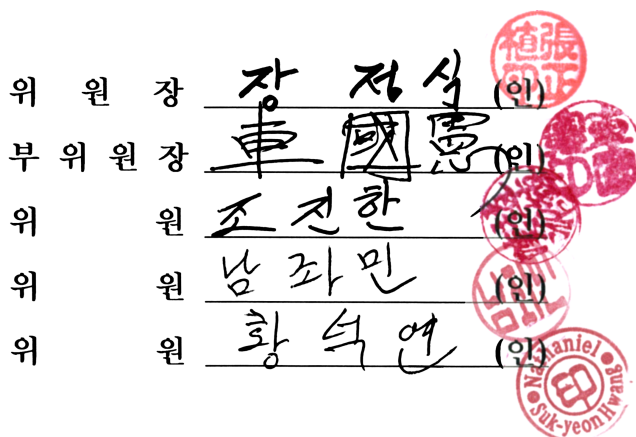 위 원 장 장 정 식 (인)
부 위 원 장 車 國 憲 (인)
위 원 조 진 한 (인)
위 원 남 좌 민 (인)
위 원 황 석 연 (인)
張正植印
Nathaniel Suk-yeon Hwang
印